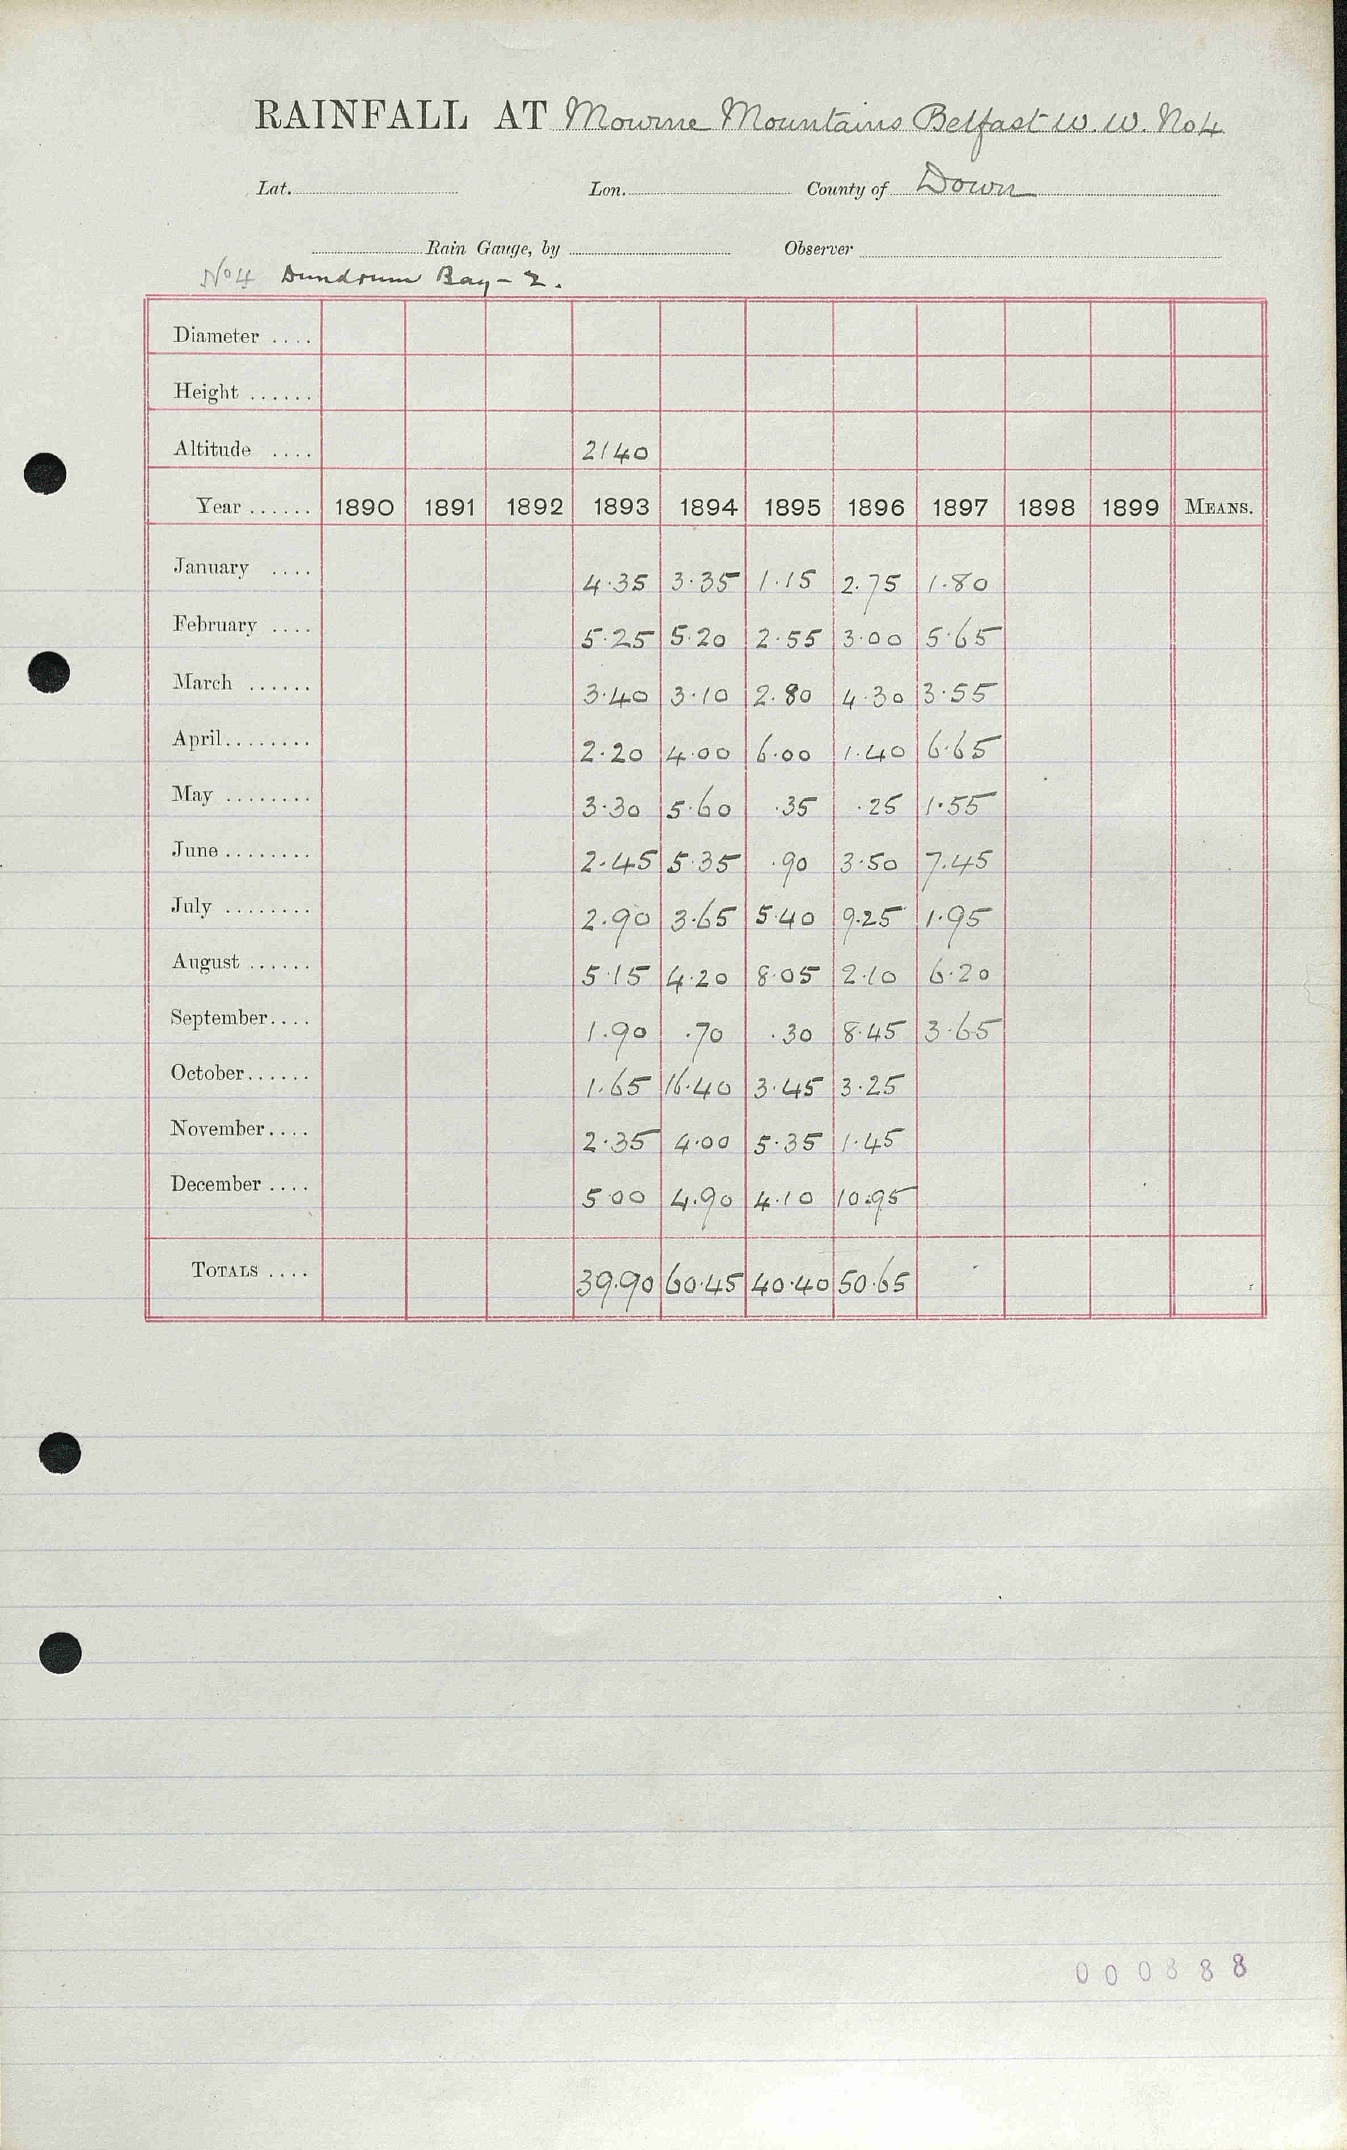 RAINFALL AT Mourne Mountains Belfast W.W. No 4
Lat. Lon. County of Down
Rain Gauge, by Observer
No 4 Dundrum Bay - 2.
Diameter ....
Height ......
Altitude .... 2140
Year ...... 1890 1891 1892 1893 1894 1895 1896 1897 1898 1899 MEANS.
January .... 4.35 3.35 1.15 2.75 1.80
February .... 5.25 5.20 2.55 3.00 5.65
March ...... 3.40 3.10 2.80 4.30 3.55
April........ 2.20 4.00 6.00 1.40 6.65
May ........ 3.30 5.60 .35 .25 1.55
June ........ 2.45 5.35 .90 3.50 7.45
July ........ 2.90 3.65 5.40 9.25 1.95
August ...... 5.15 4.20 8.05 2.10 6.20
September.... 1.90 .70 .30 8.45 3.65
October...... 1.65 16.40 3.45 3.25
November.... 2.35 4.00 5.35 1.45
December .... 5.00 4.90 4.10 10.95
TOTALS .... 39.90 60.45 40.40 50.65
000888